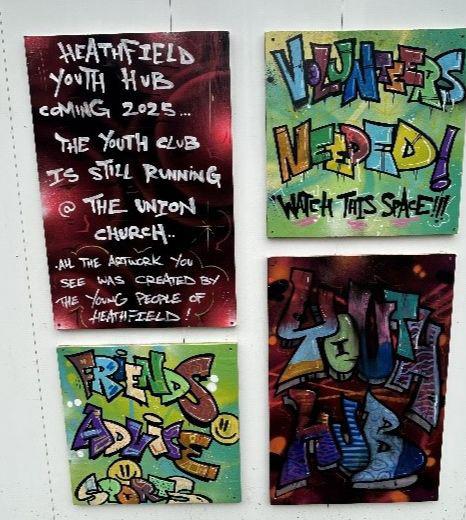 HEATHFIELD
YOUTH HUB
COMING 2025...
THE YOUTH CLUB
IS STILL RUNNING
@ THE UNION
CHURCH..
.ALL THE ARTWORK YOU
SEE WAS CREATED BY
THE YOUNG PEOPLE OF
HEATHFIELD!
VOLUNTEERS
NEEDED!
"WATCH THIS SPACE!!!
FRIENDS
ADVISE
SPORTS
YOUTH
HUB